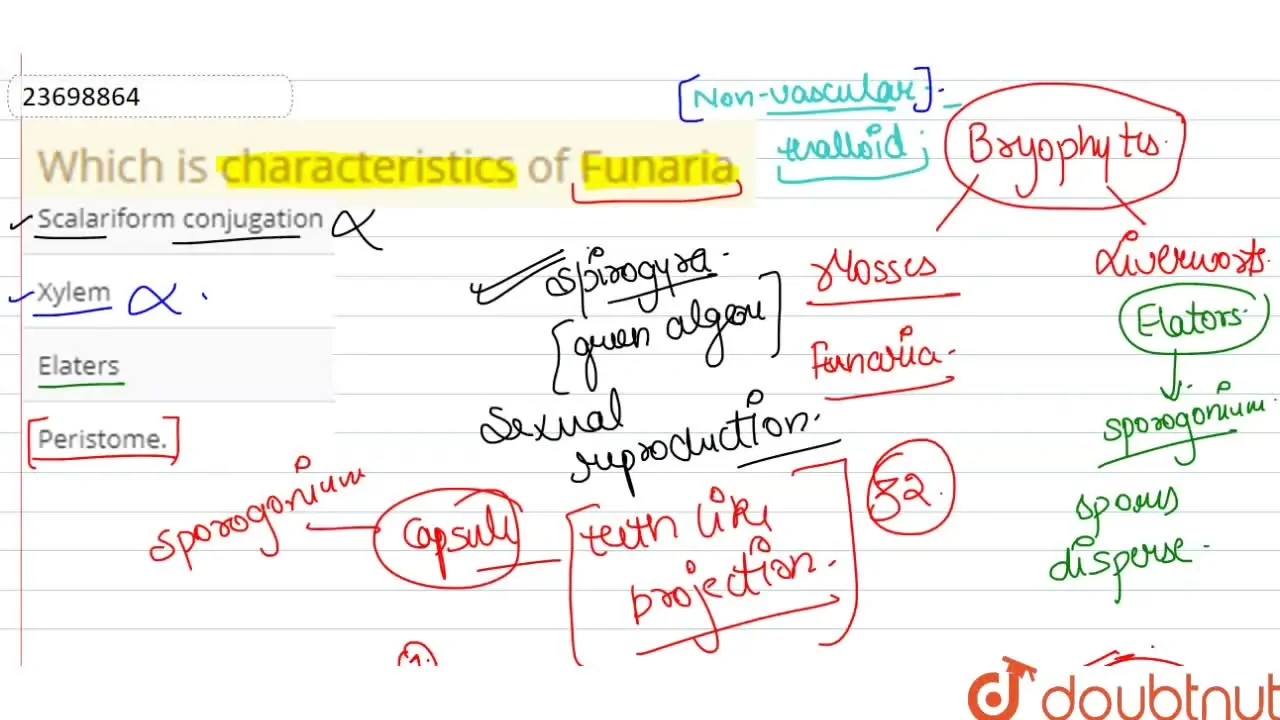 23698864
[Non-vascular].
Which is characteristics of Funaria.
thalloid;
Bryophytes.
Scalariform conjugation
Spirogyra.
Mosses
Liverworts.
Xylem
[green algae]
Elators.
Elaters
Funaria.
Sexual
reproduction.
sporogonium.
[Peristome.]
32
sporogonium
Capsule
[teeth like
projection.]
spores
disperse.
doubtnut